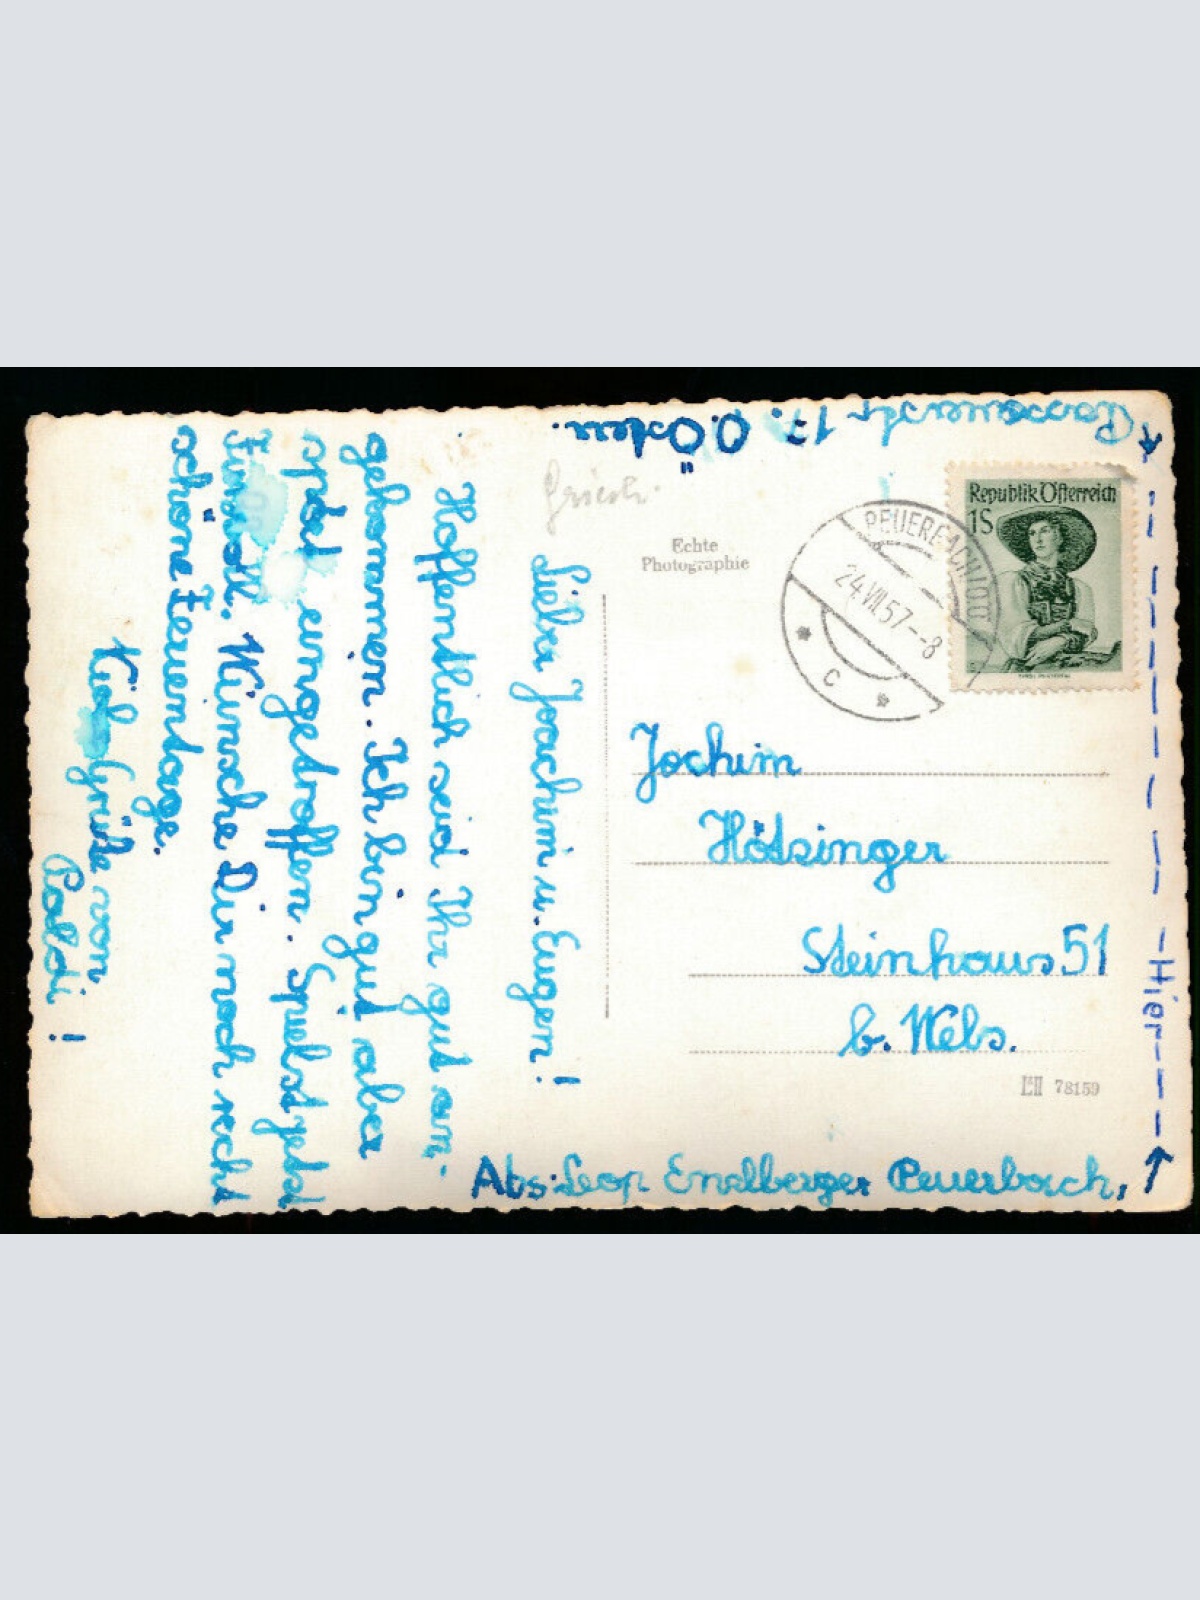 Lieber Joachim u. Eugen!
Hoffentlich seid Ihr gut an-
gekommen. Ich bin gut aber
spät eingetroffen. Spielst jetzt
Wünsche Dir noch recht
schöne Ferientage.
Viele Grüße von
Poldi!
Echte
Photographie
Republik Österreich
1S
PEUERBACH
24.VII.57--8
C
Jochim
Hötzinger
Steinhaus 51
b. Wels.
78159
Abs: Leop. Enzlberger Peuerbach,
--Hier--
Passauerstr 17. O.Österr.